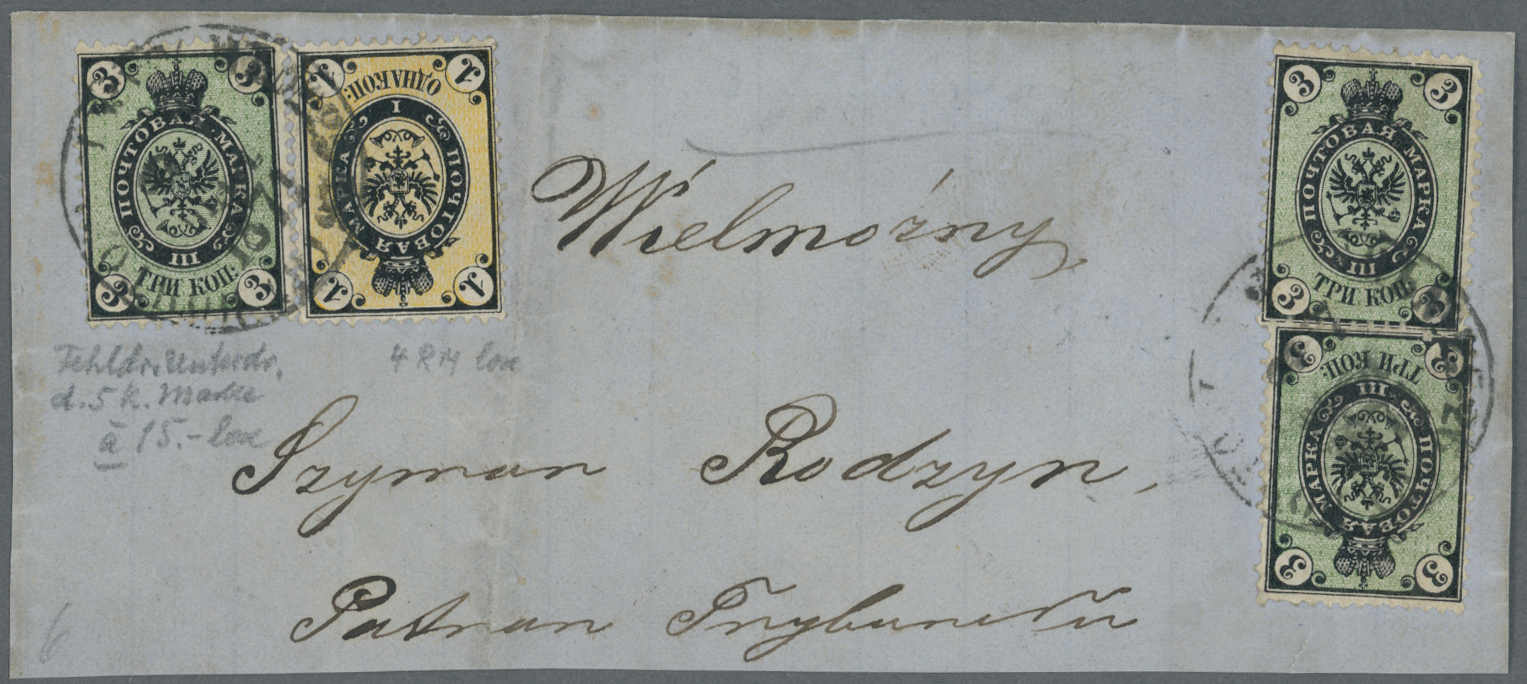 3 3
ПОЧТОВАЯ МАРКА
III
ТРИ КОП:
3 3
1 1
ОДНАКОП:
I
ПОЧТОВАЯ МАРКА
1 1
3 3
ПОЧТОВАЯ МАРКА
III
ТРИ КОП:
3 3
3 3
ТРИ КОП:
III
ПОЧТОВАЯ МАРКА
3 3
Wielmożny
Fehldr. Unterdr.
d. 5 k. Marke
à 15.- lose
4 RM lose
Szyman Rodzyn,
Patron Trybunału
6